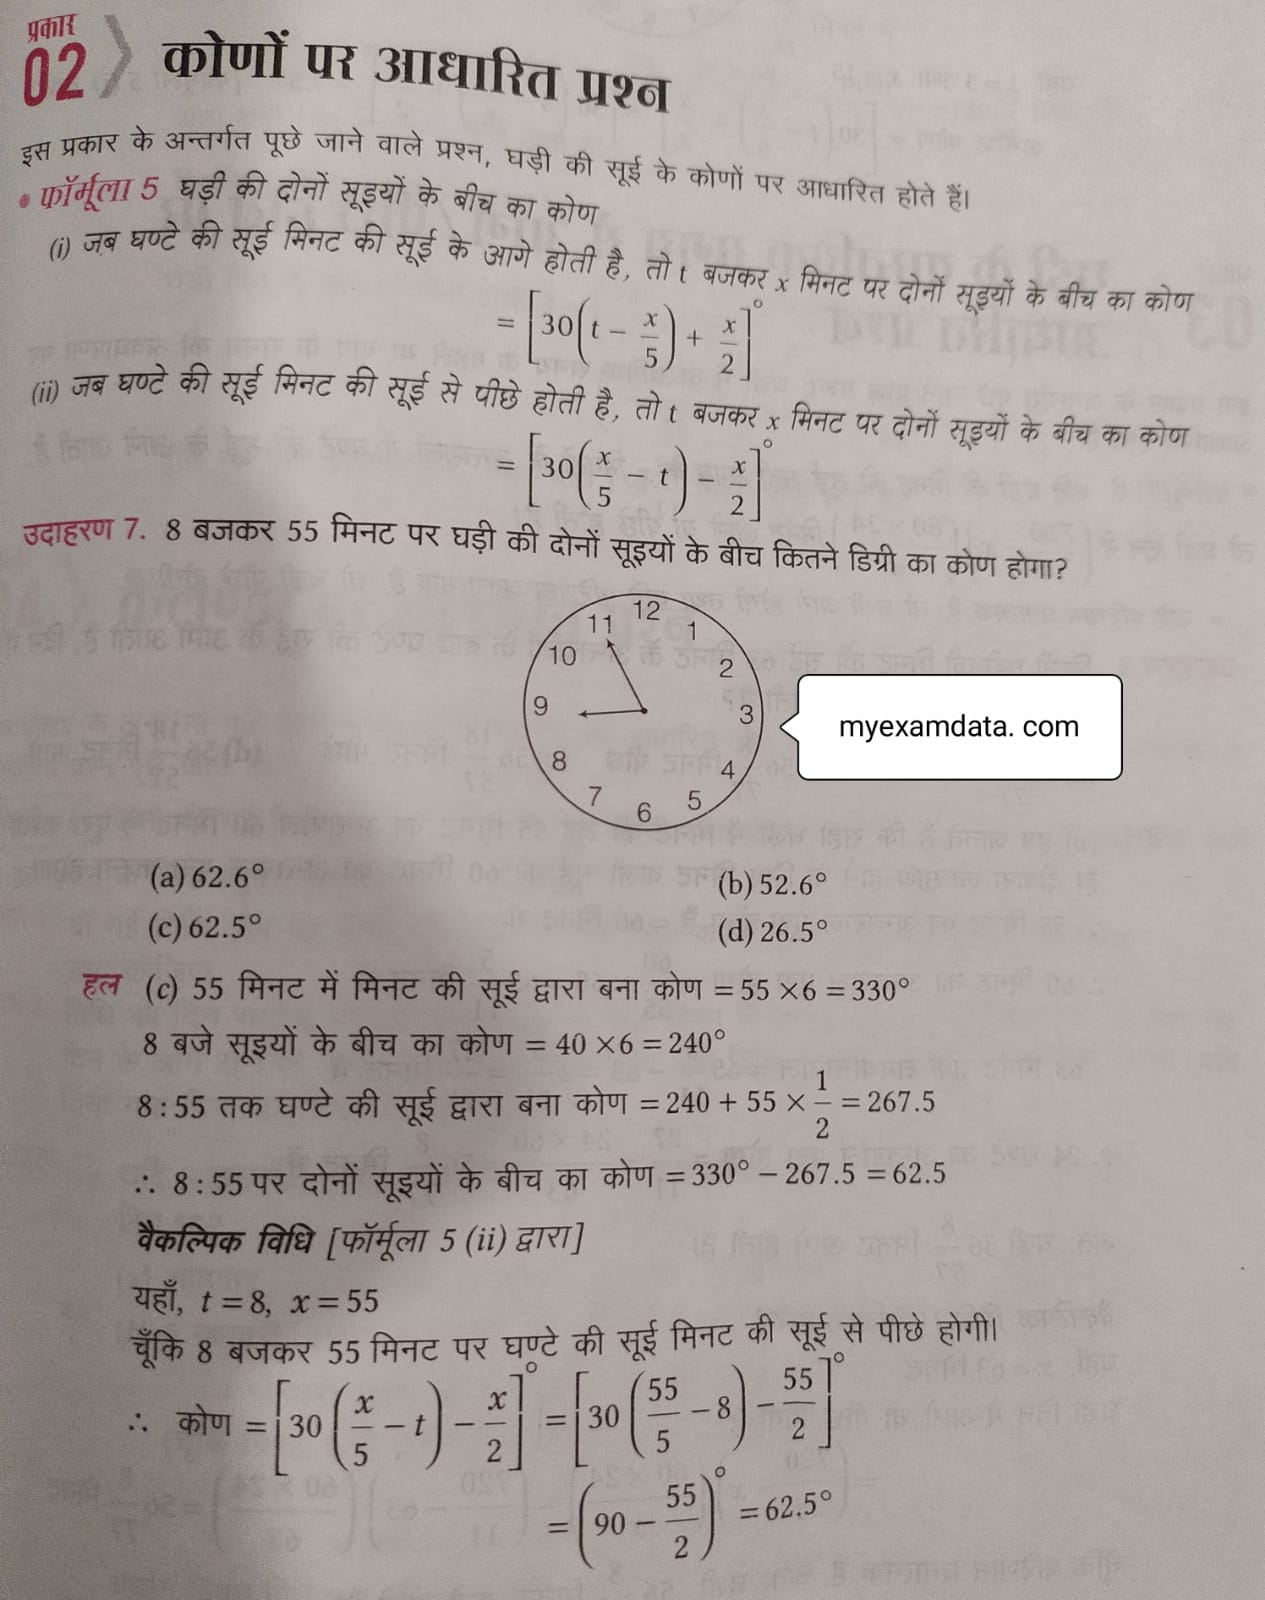 प्रकार
02
कोणों पर आधारित प्रश्न
इस प्रकार के अन्तर्गत पूछे जाने वाले प्रश्न, घड़ी की सूई के कोणों पर आधारित होते हैं।
• फॉर्मूला 5 घड़ी की दोनों सूइयों के बीच का कोण
(i) जब घण्टे की सूई मिनट की सूई के आगे होती है, तो t बजकर x मिनट पर दोनों सूइयों के बीच का कोण
= [30(t − x/5) + x/2]°
(ii) जब घण्टे की सूई मिनट की सूई से पीछे होती है, तो t बजकर x मिनट पर दोनों सूइयों के बीच का कोण
= [30(x/5 − t) − x/2]°
उदाहरण 7. 8 बजकर 55 मिनट पर घड़ी की दोनों सूइयों के बीच कितने डिग्री का कोण होगा?
12
11 1
10 2
9 3
8 4
7 5
6
myexamdata. com
(a) 62.6° (b) 52.6°
(c) 62.5° (d) 26.5°
हल (c) 55 मिनट में मिनट की सूई द्वारा बना कोण = 55 × 6 = 330°
8 बजे सूइयों के बीच का कोण = 40 × 6 = 240°
8 : 55 तक घण्टे की सूई द्वारा बना कोण = 240 + 55 × 1/2 = 267.5
∴ 8 : 55 पर दोनों सूइयों के बीच का कोण = 330° − 267.5 = 62.5
वैकल्पिक विधि [फॉर्मूला 5 (ii) द्वारा]
यहाँ, t = 8, x = 55
चूँकि 8 बजकर 55 मिनट पर घण्टे की सूई मिनट की सूई से पीछे होगी।
∴ कोण = [30(x/5 − t) − x/2]° = [30(55/5 − 8) − 55/2]°
= (90 − 55/2)° = 62.5°